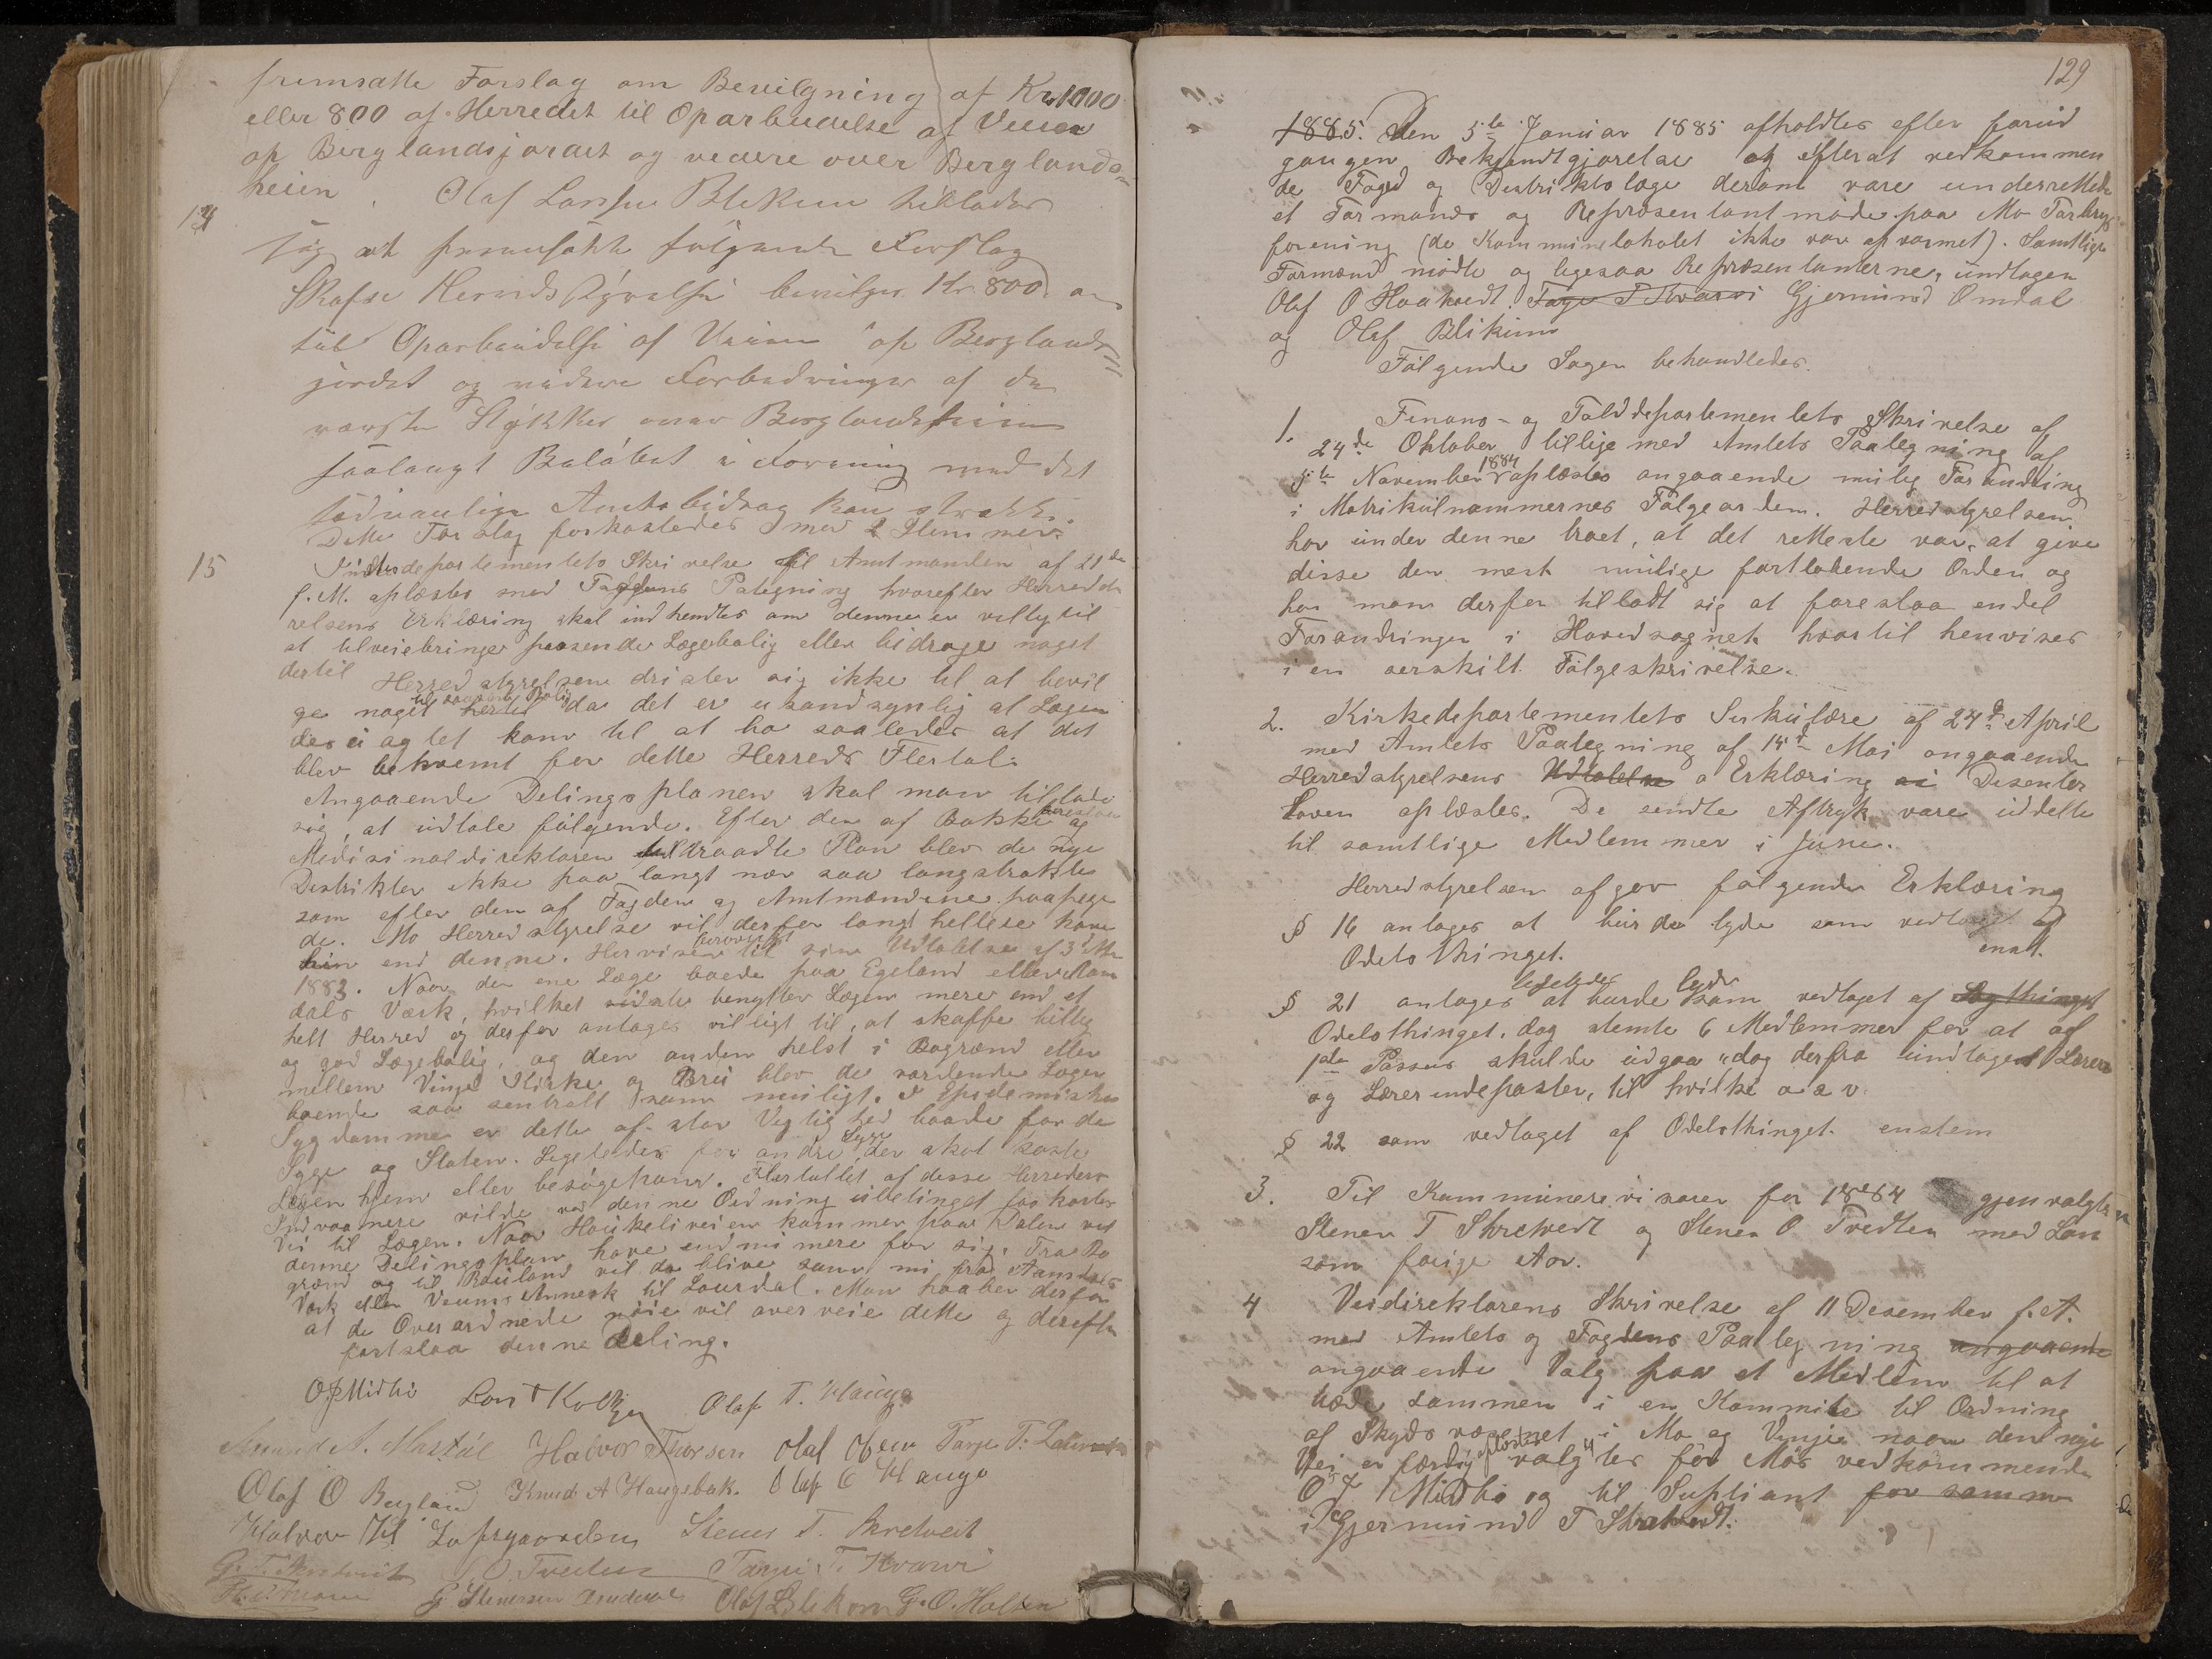 fremsatte Forslag om Bevilgning af Kr 1000
eller 800 af Herredet til Oparbeidelse af Veien
op Berglandsjordet og videre over Berglands
heien.
14 Olaf Larsen Blekum tillader
sig at fremsætte følgende Forslag
Skafse Herredsstyrelse bevilger Kr. 800
til Oparbeidelse af Veien op Berglands
jordet og videre Forbedringer af de
værste Stykker over Berglandsheien
saalangt Beløbet i Forening med det
sædvanlige Amtsbidrag kan strække.
Dette Forslag forkastedes med Stemmer.
15 Indredepartementets Skrivelse til Amtmanden af 21de
f. M. oplæstes med Fogdens Paategning hvorefter Herredsty
relsens Erklæring skal indhendtes om denne er villig til
at tilveiebringe passende Lægebolig eller bidrage noget
dertil Herredstyrelsen drister sig ikke til at bevil
ge noget til saadan Bolig da det er usandsynlig at Lægen
des i og let kom til at bo saaledes at det
blev bekvemt for dette Herreds Flertal.
Angaaende Delingsplanen skal man tillade
sig, at udtale følgende. Efter den af Bakke og
Medisinaldirektøren tiltraadte Plan blev de nye
Destrikter ikke paa langt nær saa langstrakte
som efter den af Fogden og Amtmændene paapege
de. Mo Herredstyrelse vil derfor langt hellere have
hin end denne. Henviser herom til sin Udtalelse af 3d Mai
1883. Naar den ene Læge boede paa Egeland eller Aam
dals Værk, hvilket sidste benytter Lægen mere end et
helt Herred og derfor antages villigt til, at skaffe billig
og god Lægebolig, og den anden helst i Bøgrænd eller
mellem Vinje Kirke og Bru blev de vordende Læger
boende saa sentralt som muligt. I Epidemiske
Sygdomme er dette af stor Vigtighed baade for de
Syge og Staten. Ligeledes for andre Syge der skal hente
Lægen hjem eller besøge ham. Flertallet af disse Herreders
Indvaanere vilde ved denne Ordning ubetinget faa kortere
Vei til Lægen. Naar Haukeliveien kommer paa Dalen vil
denne Delingsplan have endnu mere for sig. Fra Bø
grænd og til Rauland vil da blive som nu fra Aamdals
Værk eller Veums Annexk til Laurdal. Man haaber derfor
at de Overordnede nøie vil overveie dette og derefter
fortslaa denne deling.
O J Midbø Lars T Kolbjø Olaf T. Hauge
Amund A. Mastøl Halvor Thorsen Olaf Ofein Targe T.
Olaf O Bergland Knud A Haugebak. Olaf O Hauge
Halvor H Loftsgaarden Stener T. Skretveit
G. T. Skretveit S. O. Tvedten Tarjei T. Kvarvi
G. Stenersen Omdal Olaf L. Blekom G. O. Holten
129
1885. Den 5te Januar 1885 afholdtes efter forud
gaangen Bekjendtgjørelse og efterat vedkommen
de Foged og Destriktslæge derom vare underrettede
et Formands og Repræsentantmøde paa Mo Forbrugs
forening (da Kommunelokalet ikke var opvarmet). Samtlige
Formænd mødte og ligesaa Repræsentanterne, undtagen
Olaf O Haatvedt, Targe T Kvarvi Gjermund Omdal
og Olaf Blikum
Følgende Sager behandledes.
1. Finans- og Tolddepartementets Skrivelse af
24de Oktober tillige med Amtets Paategning af
5te November 1884 oplæstes angaaende mulig Forandring
i Matrikulnummernes Følgeorden. Herredstyrelsen
har under denne troet, at det retteste var, at give
disse den mest mulige fortløbende Orden og
har man derfor tilladt sig at foreslaa endel
Forandringer i Hovedsognet hvortil henvises
i en særskilt Følgeskrivelse.
2. Kirkedepartementets Sirkulære af 24d April
med Amtets Paategning af 15d Mai angaaende
Herredstyrelsens Udtalelse o Erklæring ai Desenter
Loven oplæstes. De sendte Aftryk vare uddelte
til samtlige Medlemmer i June.
Herredstyrelsen afgav følgende Erklæring
§ 16 antages at burde lyde som vedtaget af
Odelsthinget. enst.
§ 21 antages ligeledes at burde lyde som vedtaget af Lagthinget
Odelsthinget. dog stemte 6 Medlemmer for at af
1ste Passus skulde udgaa "dog derfra undtaget Lærer
og Lærerindeposter, til hvilke o s v.
§ 22 som vedtaget af Odelsthinget. enstem
3. Til Kommunerevisorer for 1884 gjenvalgtes
Stener T Skretvedt og Stener O Tvedten med Løn
som forige Aar.
4 Veidirektørens Skrivelse af 11 Desember f. A.
med Amtets og Fogdens Paategning angaaende
angaaende Valg paa et Medlem til at
træde sammen i en Kommite til Ordning
af Skydsvæsenet i Mo og Vinje naar den nye
Vei er færdig oplæstes og valgtes for Mos vedkommende
O J Midbø og til Supliant for samme
Gjermund T Skretvedt.